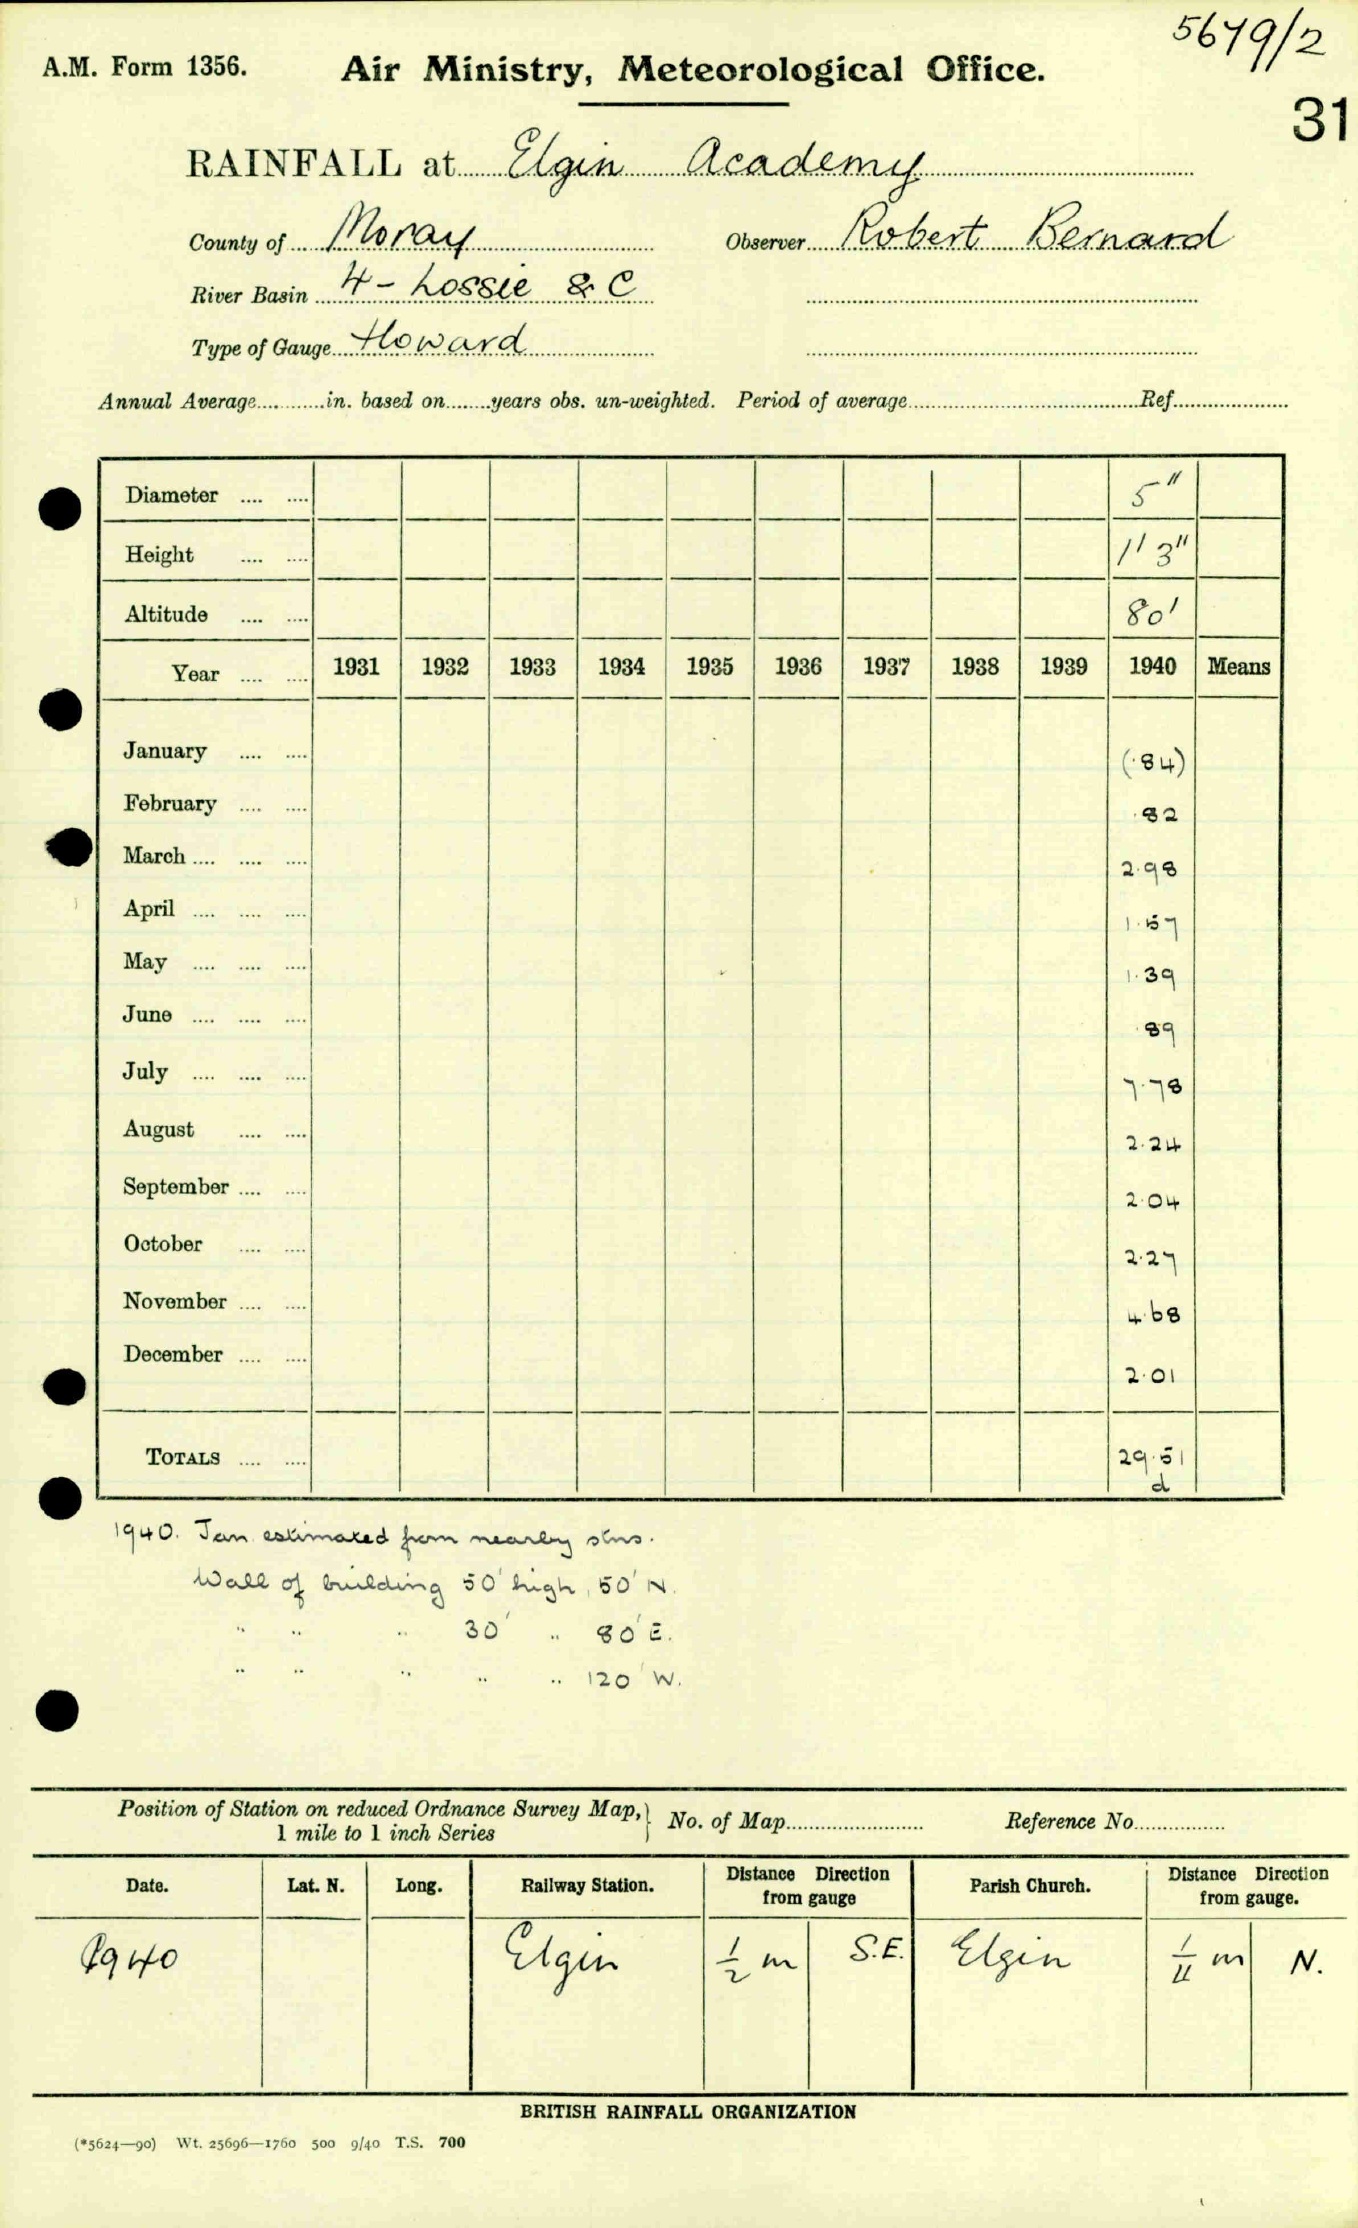 5679/2
A.M. Form 1356. Air Ministry, Meteorological Office.
31
RAINFALL at Elgin Academy
County of Moray Observer Robert Bernard
River Basin 4 - Lossie & C
Type of Gauge Howard
Annual Average in. based on years obs. un-weighted. Period of average Ref
Diameter 5"
Height 1' 3"
Altitude 80'
Year 1931 1932 1933 1934 1935 1936 1937 1938 1939 1940 Means
January (·84)
February ·82
March 2·98
April 1·57
May 1·39
June ·89
July 7·78
August 2·24
September 2·04
October 2·27
November 4·68
December 2·01
TOTALS 29·51
d
1940. Jan estimated from nearby stns.
Wall of building 50' high, 50' N.
" " " 30' " 80' E.
" " " " " 120' W.
Position of Station on reduced Ordnance Survey Map,} No. of Map Reference No
1 mile to 1 inch Series
Date. Lat. N. Long. Railway Station. Distance Direction from gauge Parish Church. Distance Direction from gauge.
1940 Elgin 1/2 m S.E. Elgin 1/4 m N.
BRITISH RAINFALL ORGANIZATION
(*5624—90) Wt. 25696—1760 500 9/40 T.S. 700